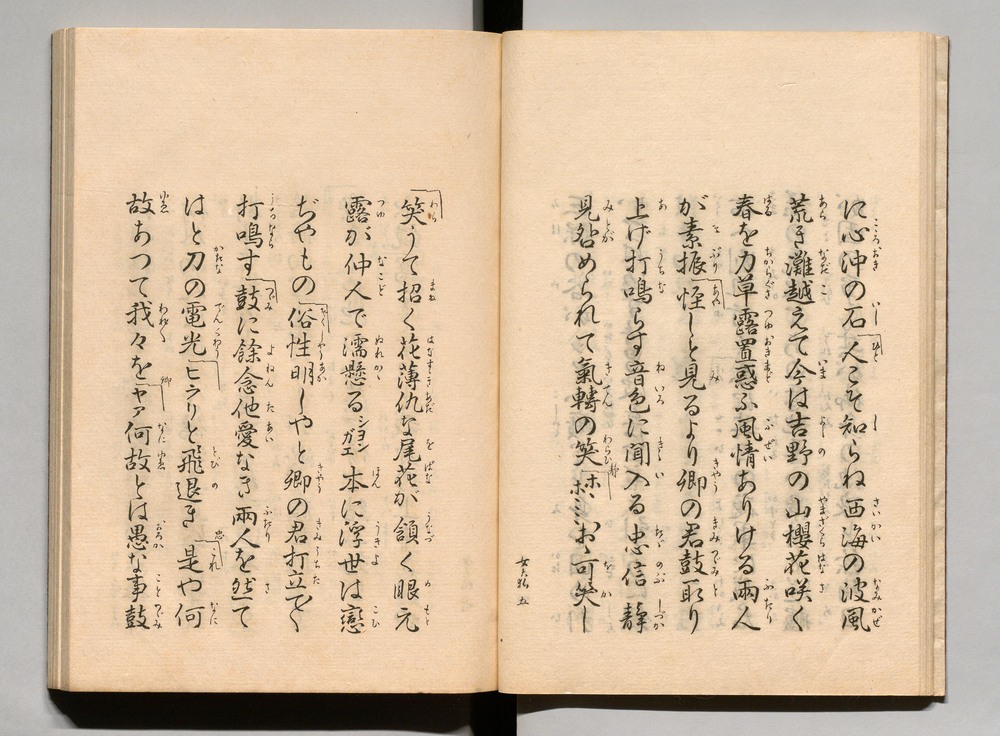 に心沖の石人こそ知らね西海の波風
荒き灘越えて今は吉野の山櫻花咲く
春を力草露置惑ふ風情ありける兩人
が素振怪しと見るより卿の君鼓取り
上げ打鳴らす音色に聞入る忠信靜
見咎められて氣轉の笑ホヽヽヽおゝ可笑し
女夫狐 五
笑うて招く花薄仇な尾花が頷く眼元
露が仲人で濡懸るションガエ本に浮世は戀
ぢやもの俗性明しやと卿の君打立てく
打鳴す鼓に餘念他愛なき兩人を然て
はと刀の電光ヒラリと飛退き是や何
故あつて我々をヤァ何故とは愚な事鼓